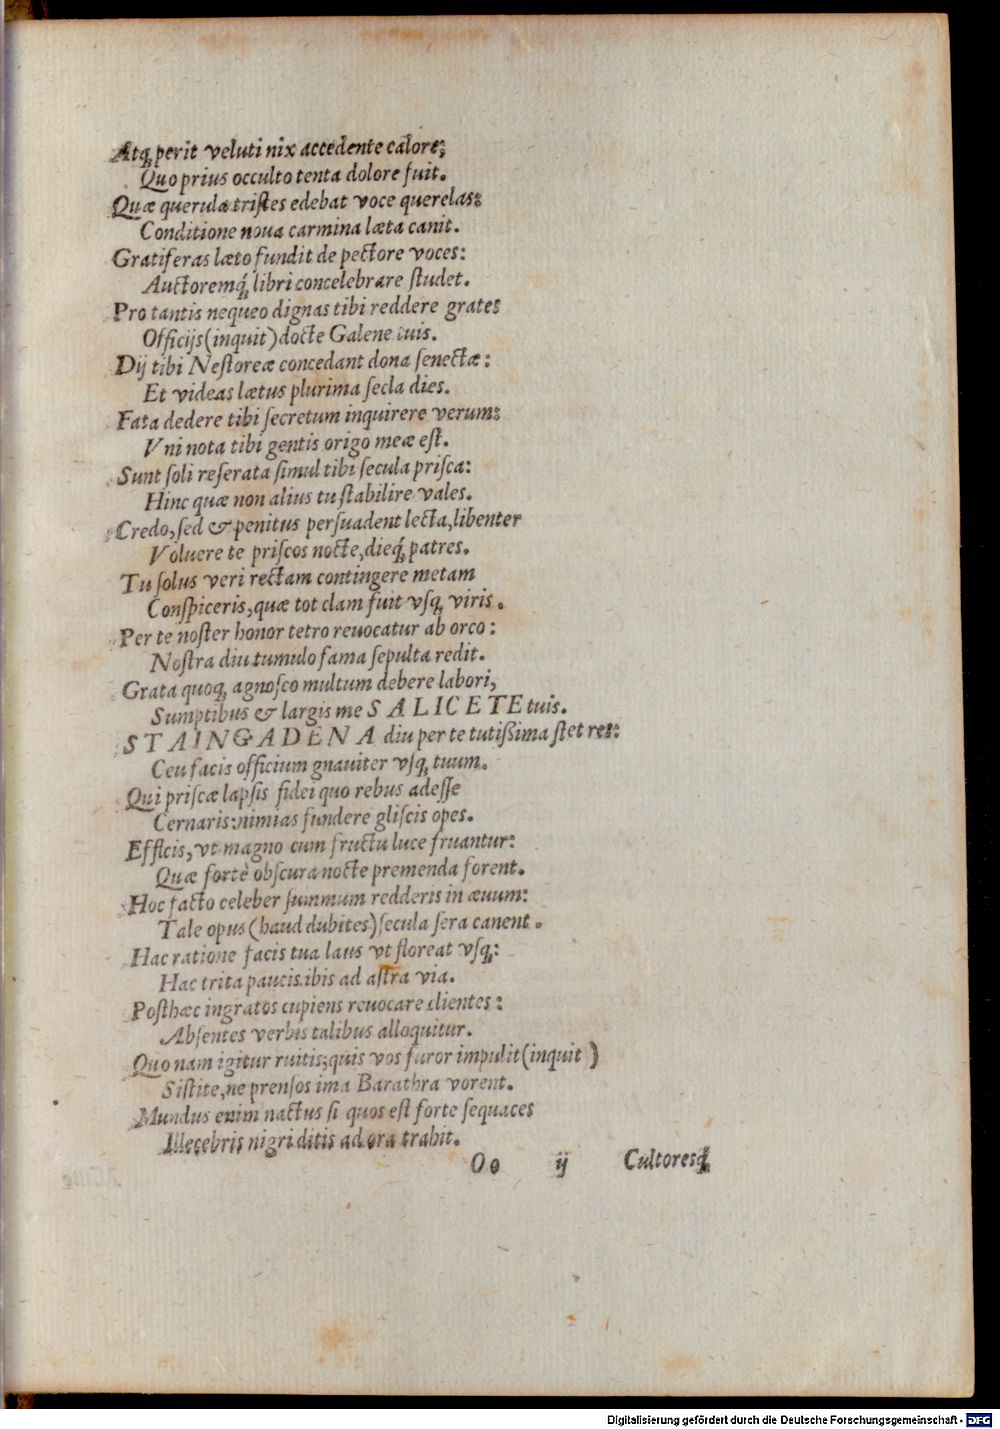 Atq́; perit veluti nix accedente calore;
Quo prius occulto tenta dolore fuit.
Quæ querula tristes edebat voce querelas:
Conditione noua carmina læta canit.
Gratiferas læto fundit de pectore voces:
Auctoremq́; libri concelebrare studet.
Pro tantis nequeo dignas tibi reddere grates
Officijs (inquit) docte Galene tuis.
Dij tibi Nestoreæ concedant dona senectæ:
Et videas lætus plurima secla dies.
Fata dedere tibi secretum inquirere verum:
Vni nota tibi gentis origo meæ est.
Sunt soli reserata simul tibi secula prisca:
Hinc quæ non alius tu stabilire vales.
Credo, sed & penitus persuadent lecta, libenter
Voluere te priscos nocte, dieq́; patres.
Tu solus veri rectam contingere metam
Conspiceris, quæ tot clam fuit vsq; viris.
Per te noster honor tetro reuocatur ab orco:
Nostra diu tumulo fama sepulta redit.
Grata quoq; agnosco multum debere labori,
Sumptibus & largis me SALICETE tuis.
STAINGADENA diu per te tutißima stet res:
Ceu facis officium gnauiter vsq; tuum.
Qui priscæ lapsis fidei quo rebus adesse
Cernaris: nimias fundere gliscis opes.
Efficis, vt magno cum fructu luce fruantur:
Quæ fortè obscura nocte premenda forent.
Hoc facto celeber summum redderis in æuum:
Tale opus (haud dubites) secula sera canent.
Hac ratione facis tua laus vt floreat vsq;:
Hac trita paucis ibis ad astra via.
Posthæc ingratos cupiens reuocare clientes:
Absentes verbis talibus alloquitur.
Quo nam igitur ruitis; quis vos furor impulit (inquit)
Sistite, ne prensos ima Barathra vorent.
Mundus enim nactus si quos est forte sequaces
Illecebris nigri ditis ad ora trahit.
Oo ij Cultoresq́;
Digitalisierung gefördert durch die Deutsche Forschungsgemeinschaft - DFG